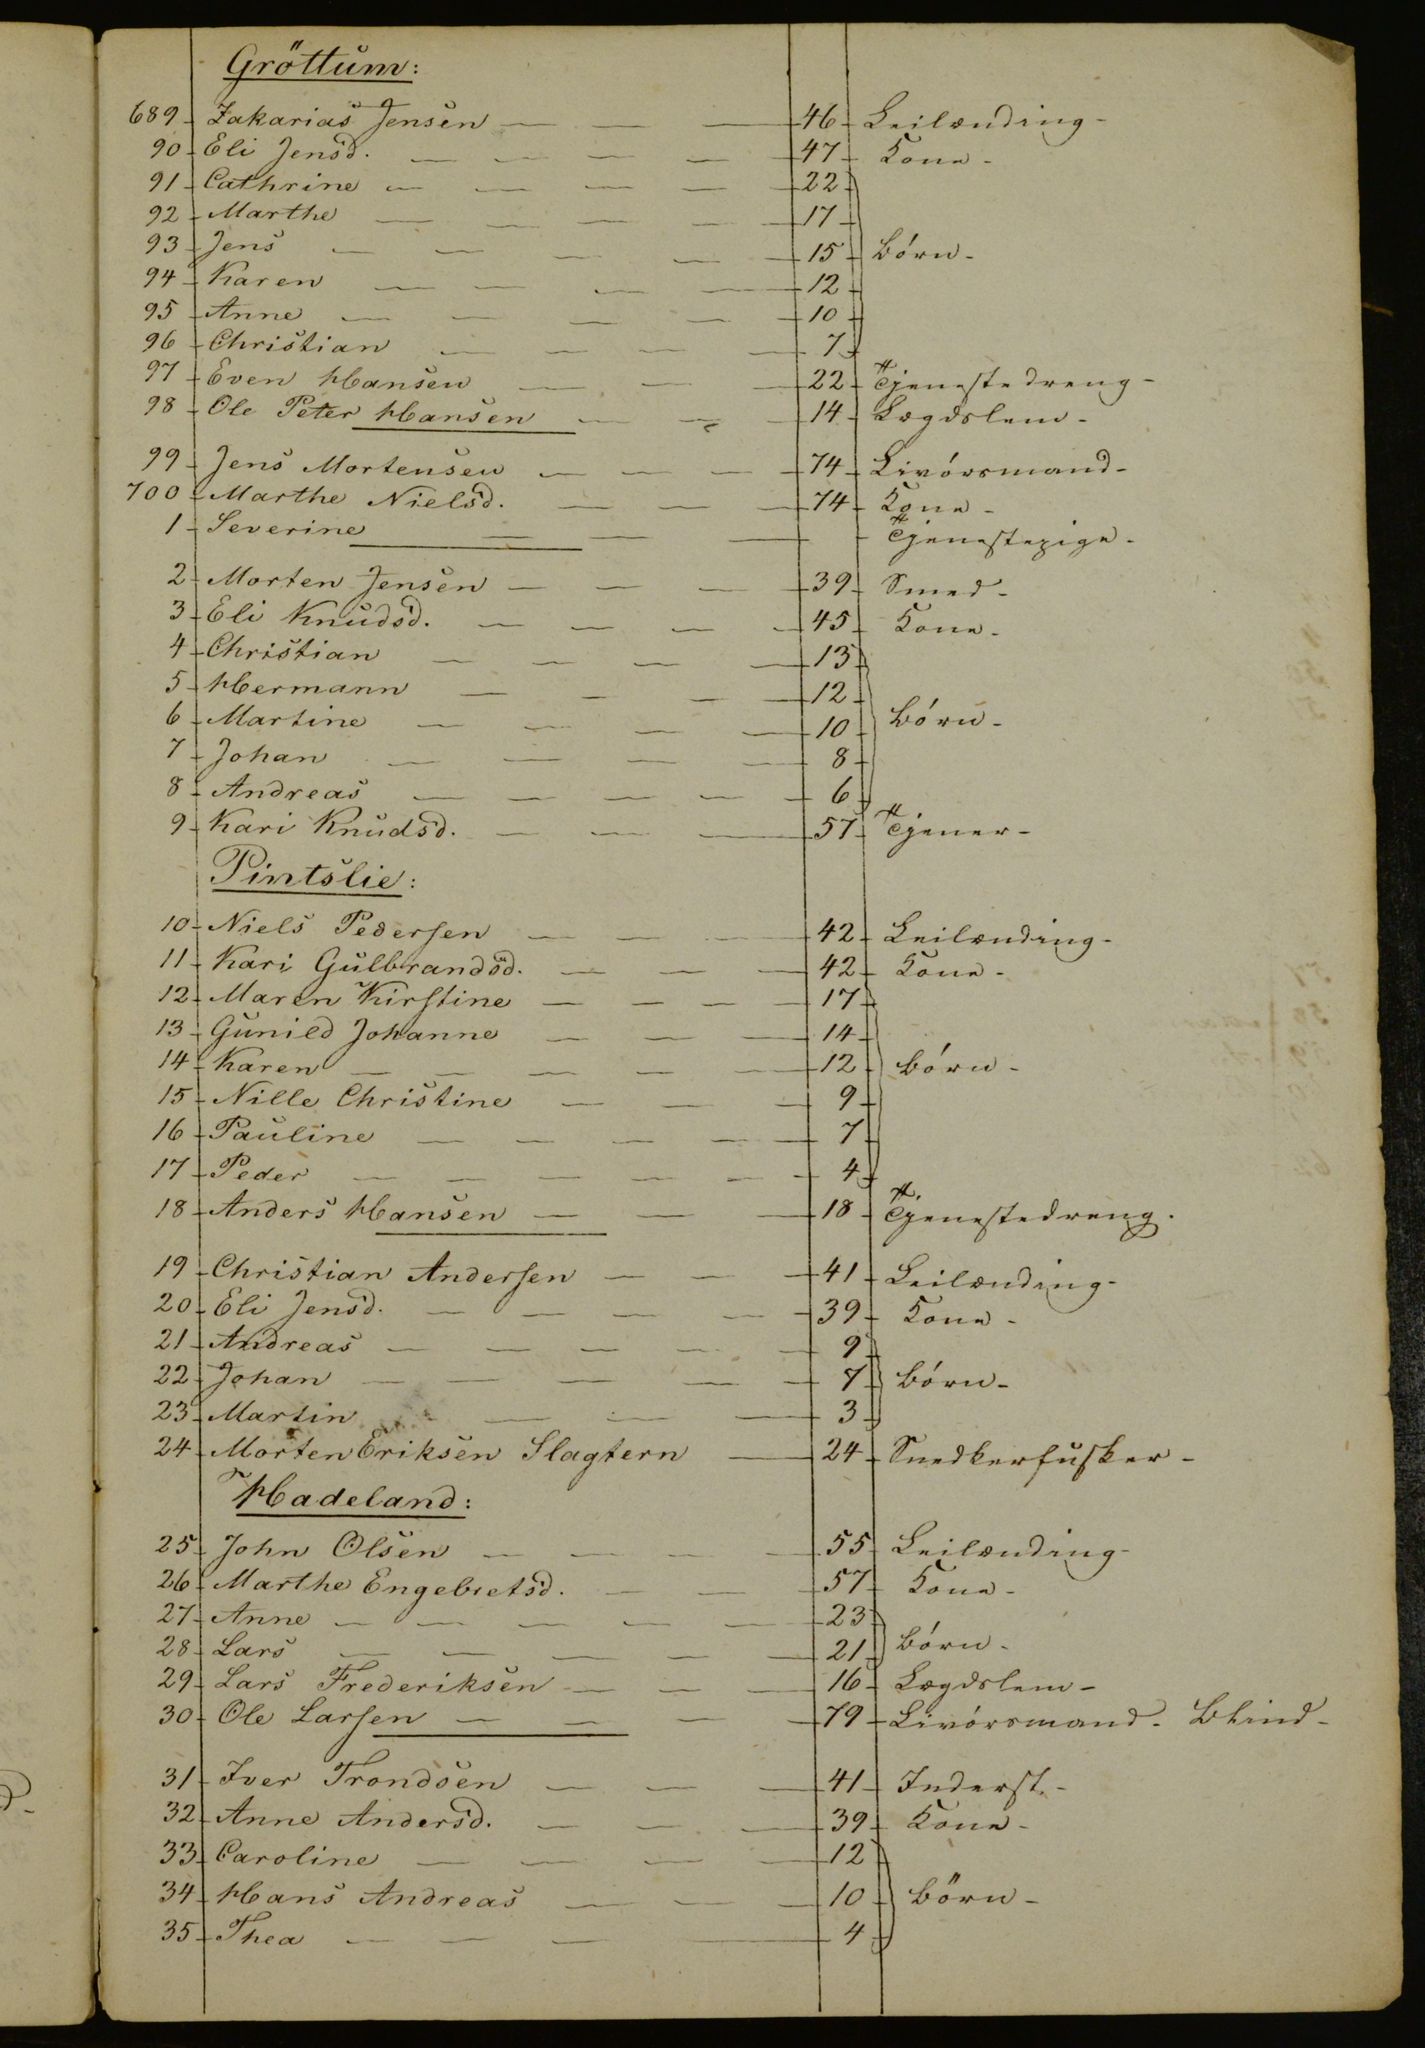 Gröttum:
689 Zakarias Jensen — — — 46 Leilænding -
90 Eli Jensd. — — — — 47 Kone -
91 Cathrine — — — — 22
92 Marthe — — — — 17
93 Jens — — — — 15 Börn -
94 Karen — — — — 12
95 Anne — — — — 10
96 Christian — — — — 7
97 Even Hansen — — — 22 Tjenestedreng -
98 Ole Peter Hansen — — — 14 Lægdslem -
99 Jens Mortensen — — — 74 Livörsmand -
700 Marthe Nielsd. — — — 74 Kone -
1 Severine — — — Tjenestepige -
2 Morten Jensen — — — 39 Smed -
3 Eli Knudsd. — — — — 45 Kone -
4 Christian — — — — 13
5 Hermann — — — — 12
6 Martine — — — — 10 Börn -
7 Johan — — — — 8
8 Andreas — — — — 6
9 Kari Knudsd. — — — 57 Tjener -
Pintslie:
10 Niels Pedersen — — — 42 Leilænding -
11 Kari Gulbrandsd. — — — 42 Kone -
12 Maren Kirstine — — — — 17
13 Gunild Johanne — — — 14
14 Karen — — — — — 12 Börn -
15 Nille Christine — — — 9
16 Pauline — — — — — 7
17 Peder — — — — — 4
18 Anders Hansen — — — 18 Tjenestedreng.
19 Christian Andersen — — — 41 Leilænding -
20 Eli Jensd. — — — — 39 Kone -
21 Andreas — — — — — 9
22 Johan — — — — — 7 Börn -
23 Martin — — — 3
24 Morten Eriksen Slagtern — 24 Snedkerfusker -
Hadeland:
25 John Olsen — — — — 55 Leilænding -
26 Marthe Engebretsd. — — 57 Kone -
27 Anne — — — — — 23
28 Lars — — — — — 21 Börn -
29 Lars Frederiksen — — — 16 Lægdslem -
30 Ole Larsen — — — — 79 Livörsmand - Blind -
31 Iver Trondsen — — — 41 Inderst. -
32 Anne Andersd. — — — 39 Kone -
33 Caroline — — — — 12
34 Hans Andreas — — — 10 Börn -
35 Thea — — — — 4